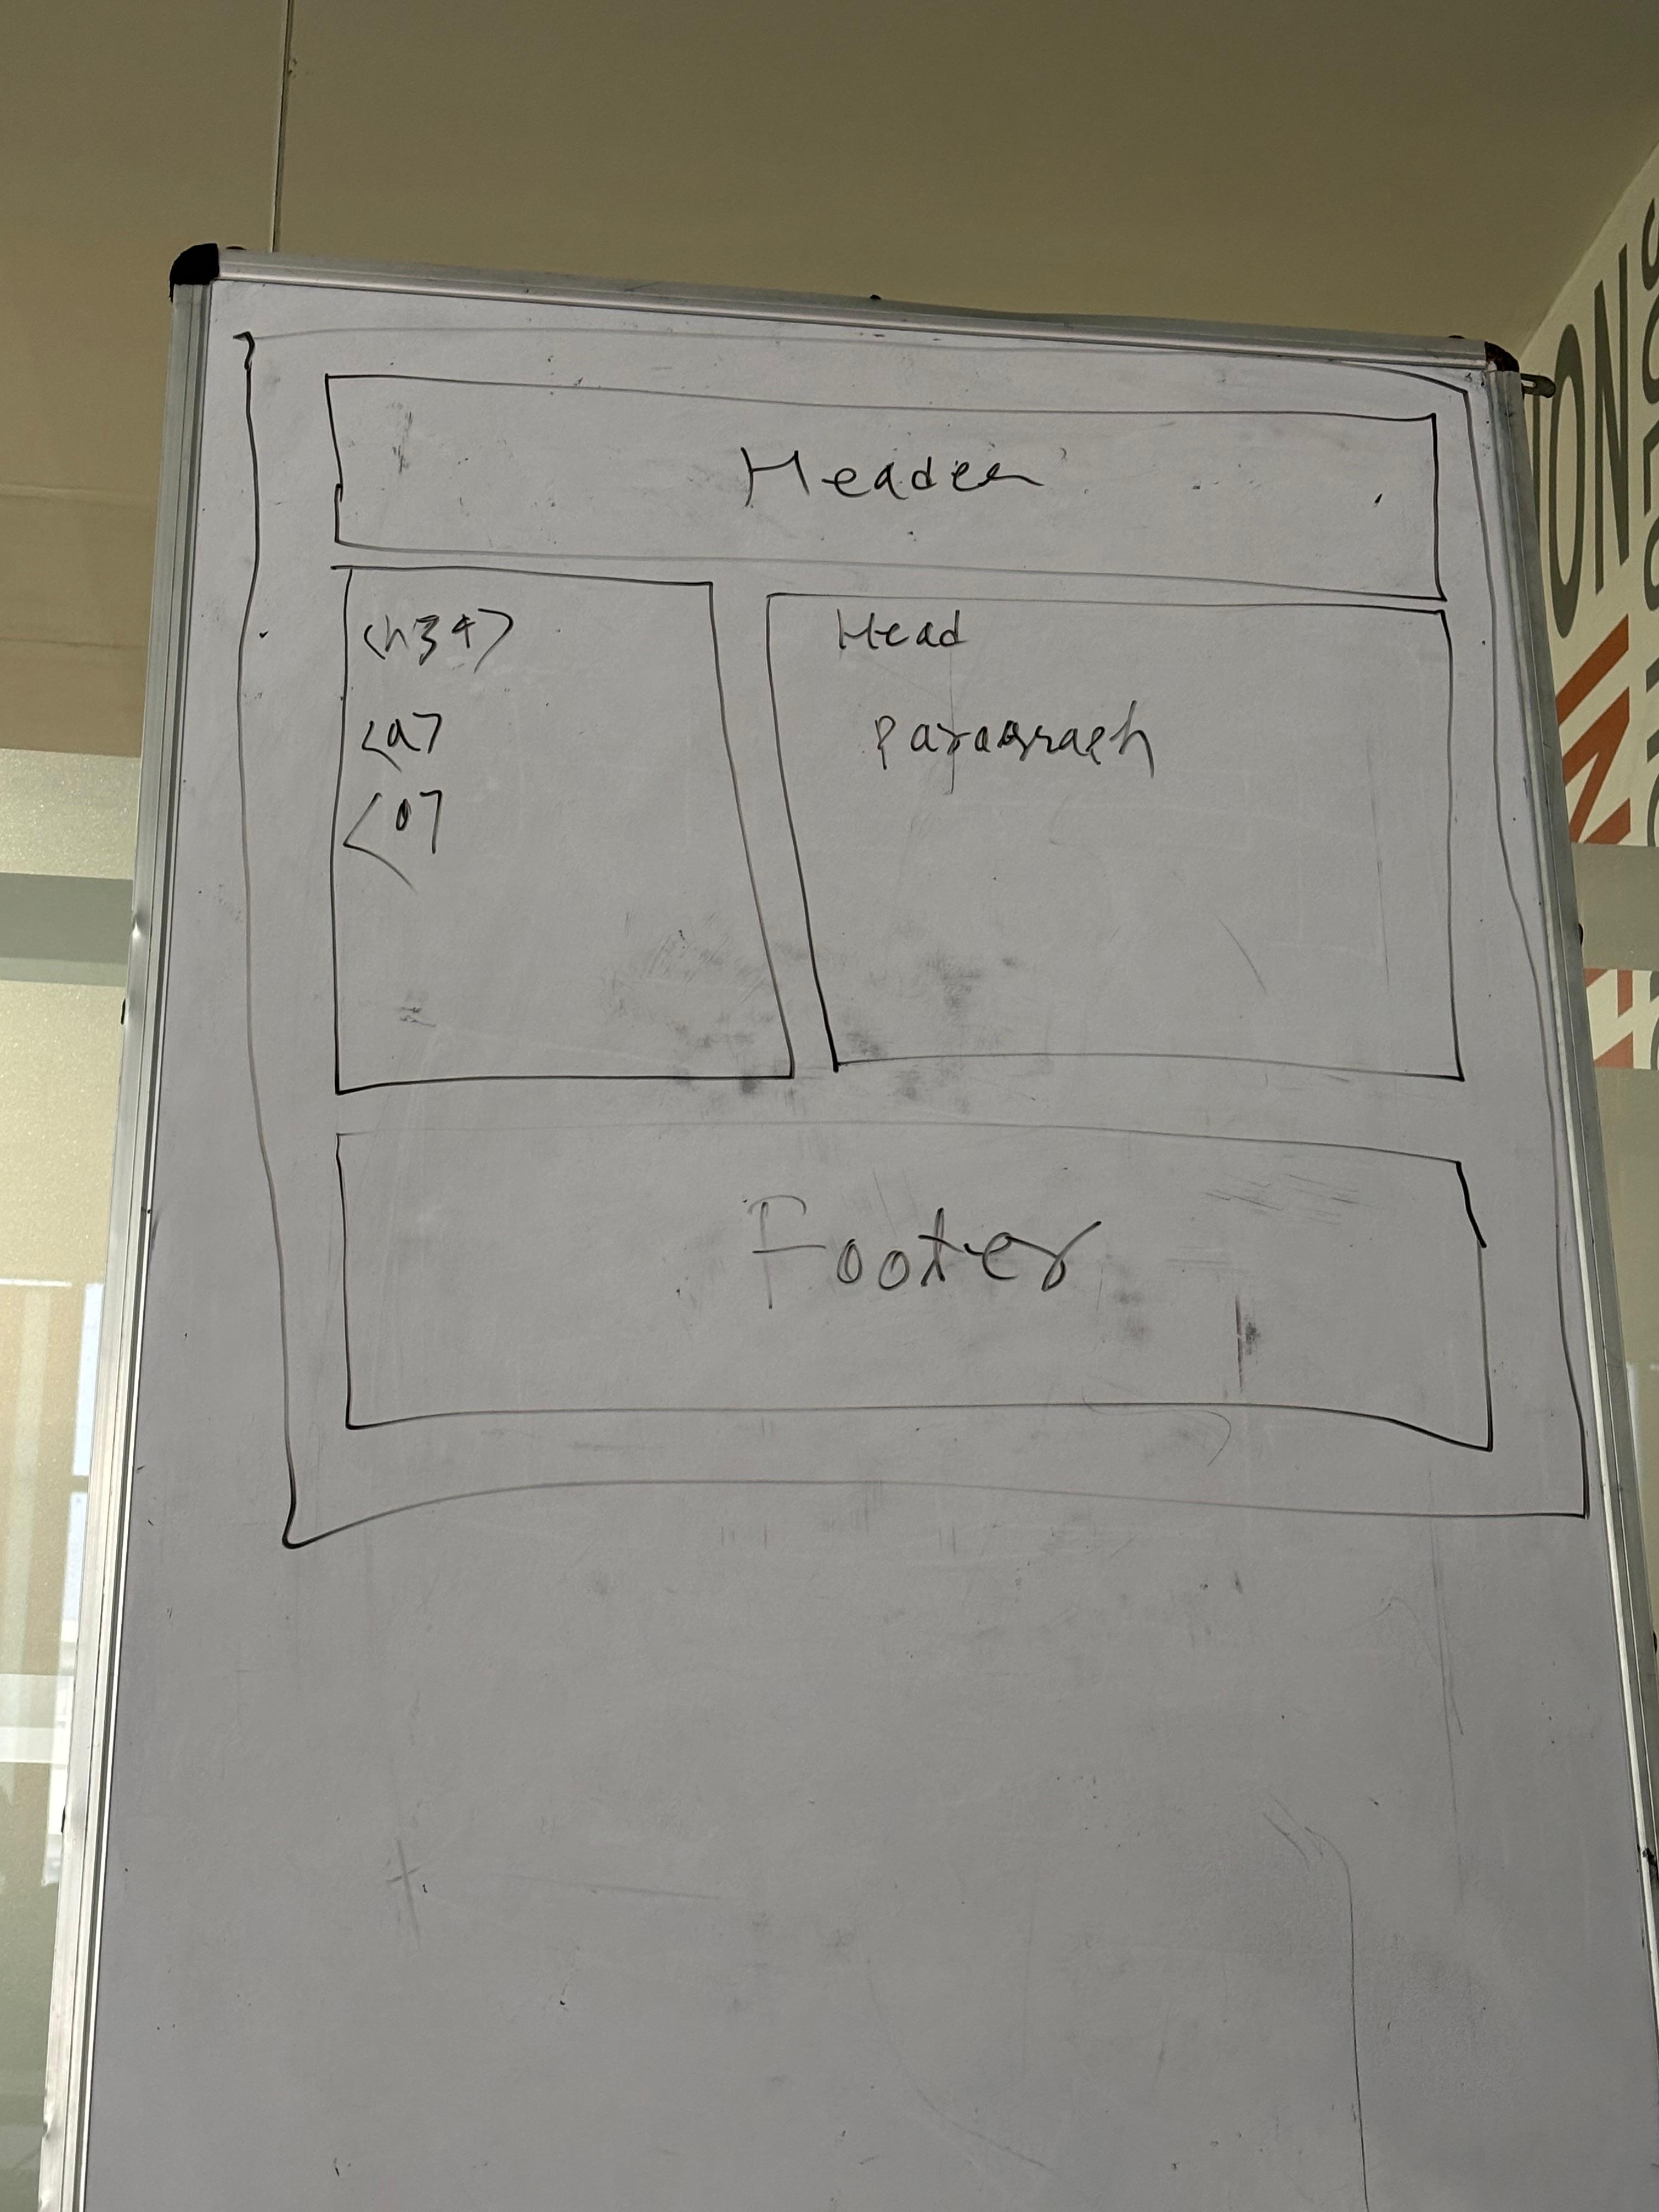 Header
<h34>
<a>
<a>
Head
Paragraph
Footer
ION